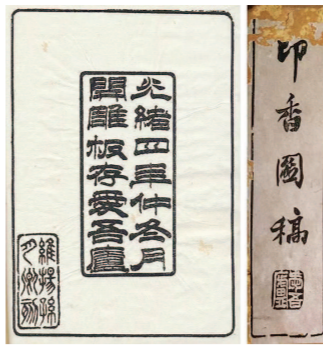 光緒四年仲冬月
開雕板存愛吾廬
維揚孫
月洲刻
印香圖稿